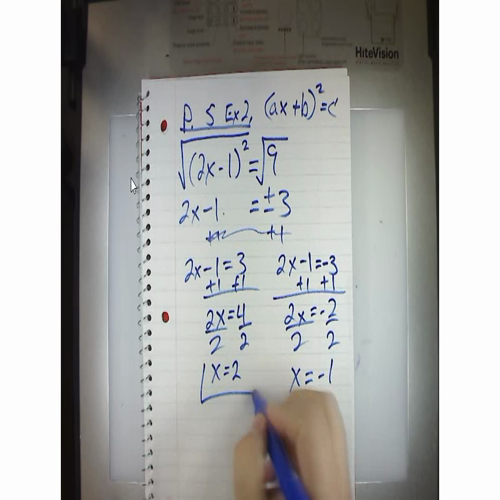 HiteVision
P. 5 Ex 2, (ax+b)² = c
√(2x-1)² = √9
2x-1 = ±3
+1 +1
2x-1=3 2x-1=-3
+1 +1 +1 +1
2x=4 2x=-2
2 2 2 2
x=2 x=-1